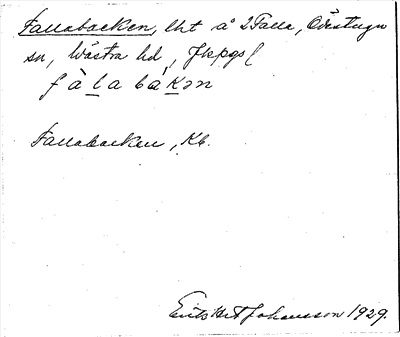 Fallabacken, lht å 2 Falla, Örestugn
sn, Västra hd, Jkpgs l
f à l a b á k ə n
Fallabacken, Kb.
Johansson 1929.